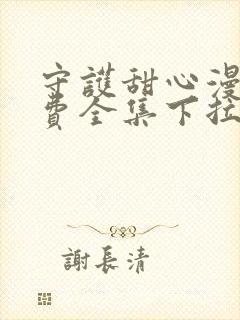 守護甜心漫
費全集下拉
謝長清